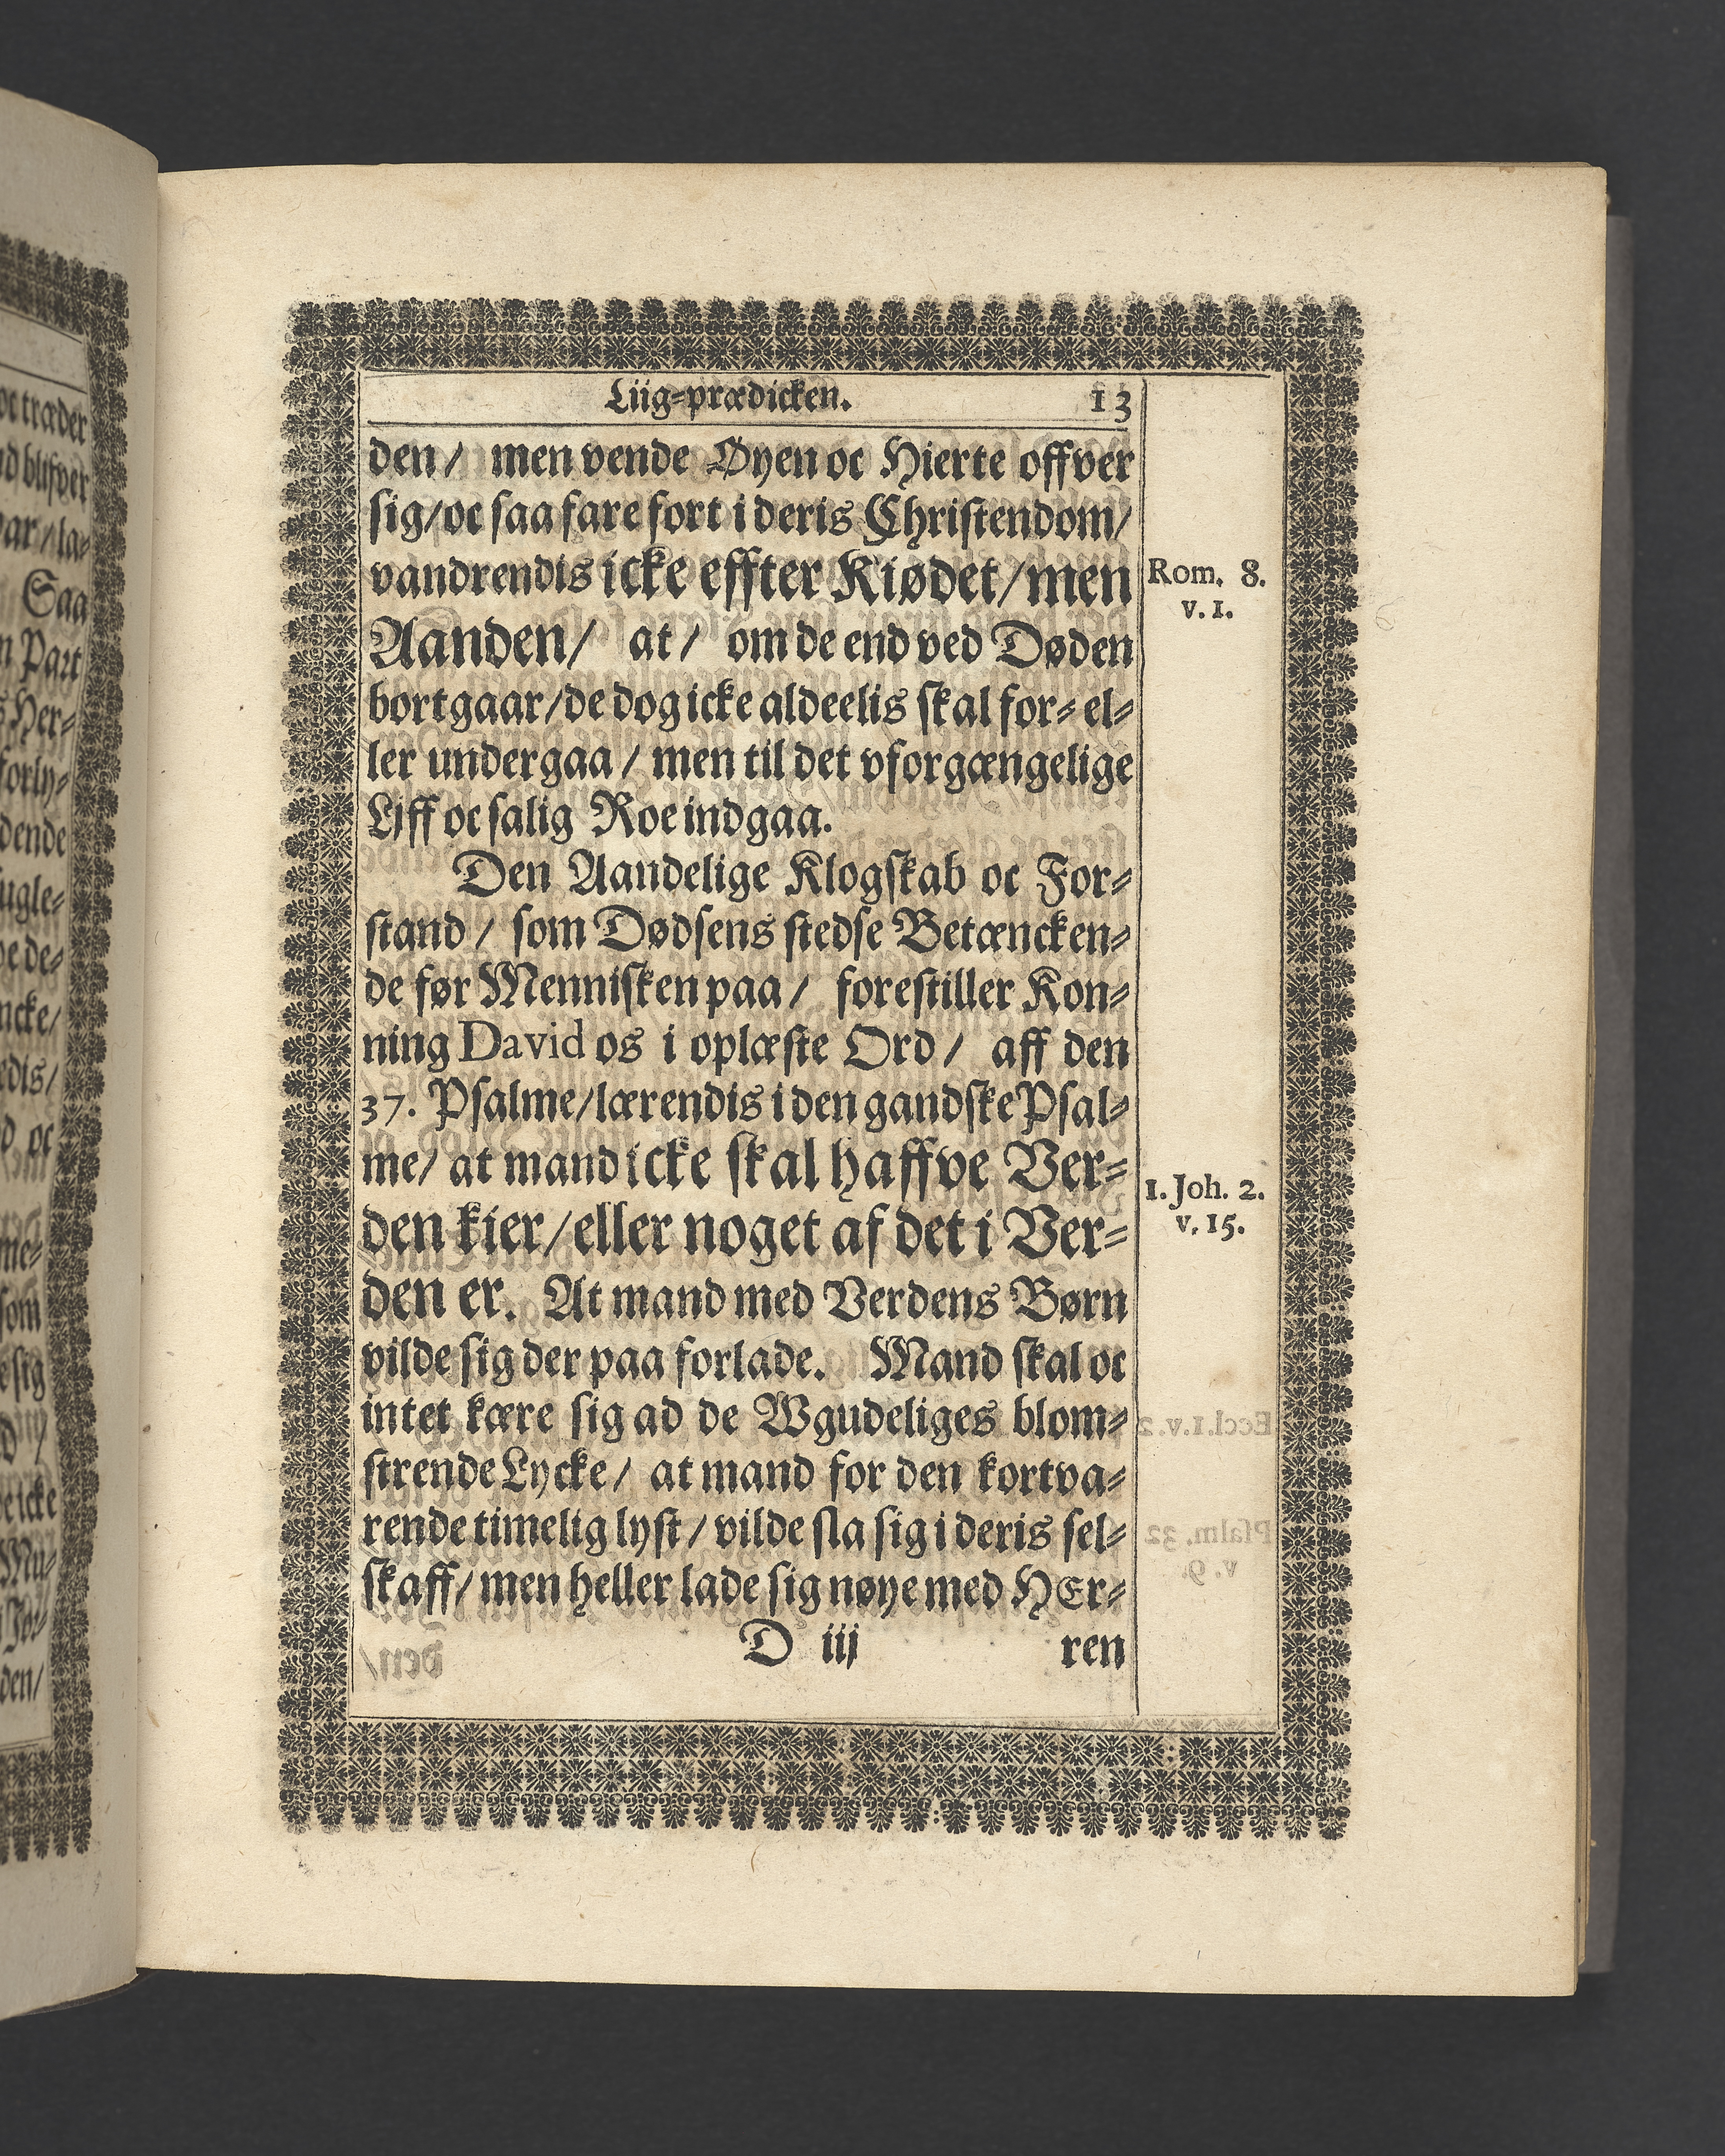 Liig-prædicken. 13
den/ men vende Øyen oc Hierte offver
sig/oc saa fare fort i deris Christendom/
vandrendis icke effter Kiødet/men
Rom. 8.
v. 1.
Aanden/ at/ om de end ved Døden
bortgaar/de dog icke aldeelis skal for- el-
ler undergaa/ men til det vforgængelige
Lyff oc salig Roe indgaa.
Den Aandelige Klogskab oc For-
stand/ som Dødsens stedse Betæncken-
de før Mennisken paa/ forestiller Kon-
ning David os i oplæste Ord/ aff den
37. Psalme/lærendis i den gandske Psal-
me/ at mand icke skal haffve Ver-
1. Joh. 2.
v. 15.
den kier/eller noget af det i Ver-
den er. At mand med Verdens Børn
vilde sig der paa forlade. Mand skal oc
intet kære sig ad de Wgudeliges blom-
strende Lycke/ at mand for den kortva-
rende timelig lyst/ vilde sla sig i deris sel-
skaff/ men heller lade sig nøye med HEr-
D iij ren